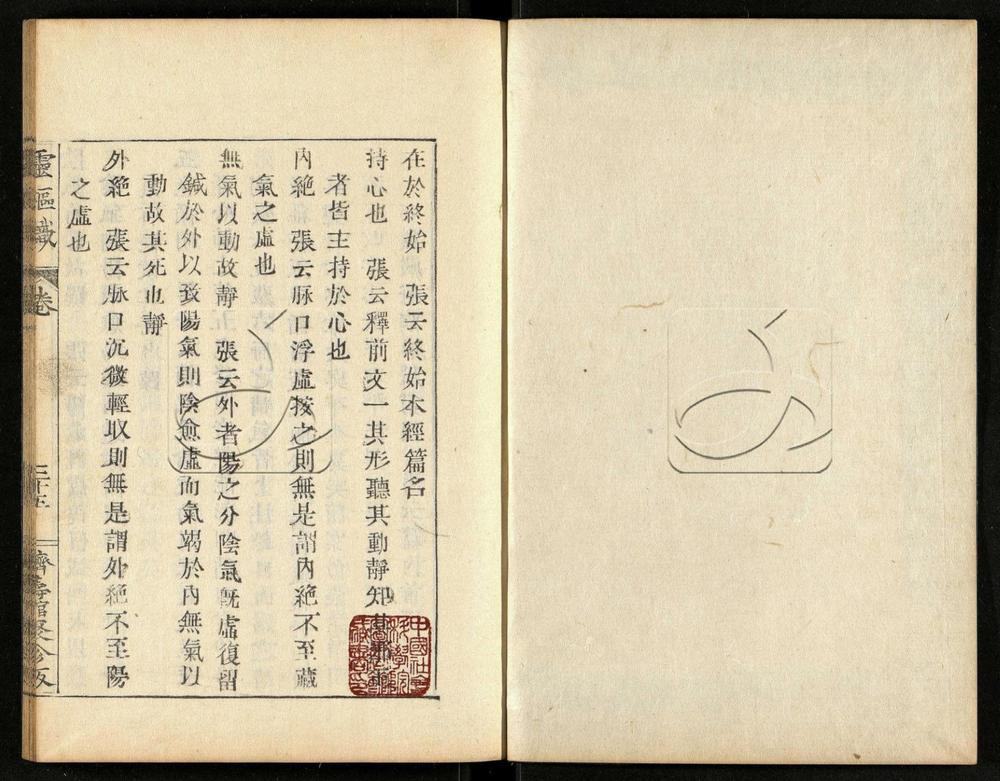 在於終始 張云終始本經篇名
持心也 張云釋前文一其形聽其動靜知
者皆主持於心也
內絶 張云脉口浮虛按之則無是謂內絶不至藏
氣之虛也
無氣以動故靜 張云外者陽之分陰氣旣虛復留
鍼於外以致陽氣則陰愈虛而氣竭於內無氣以
動故其死也靜
外絶 張云脉口沉微輕取則無是謂外絶不至陽
之虛也
靈樞識 卷
三十五
濟壽館聚珍版
中國社會
科學院
藏書